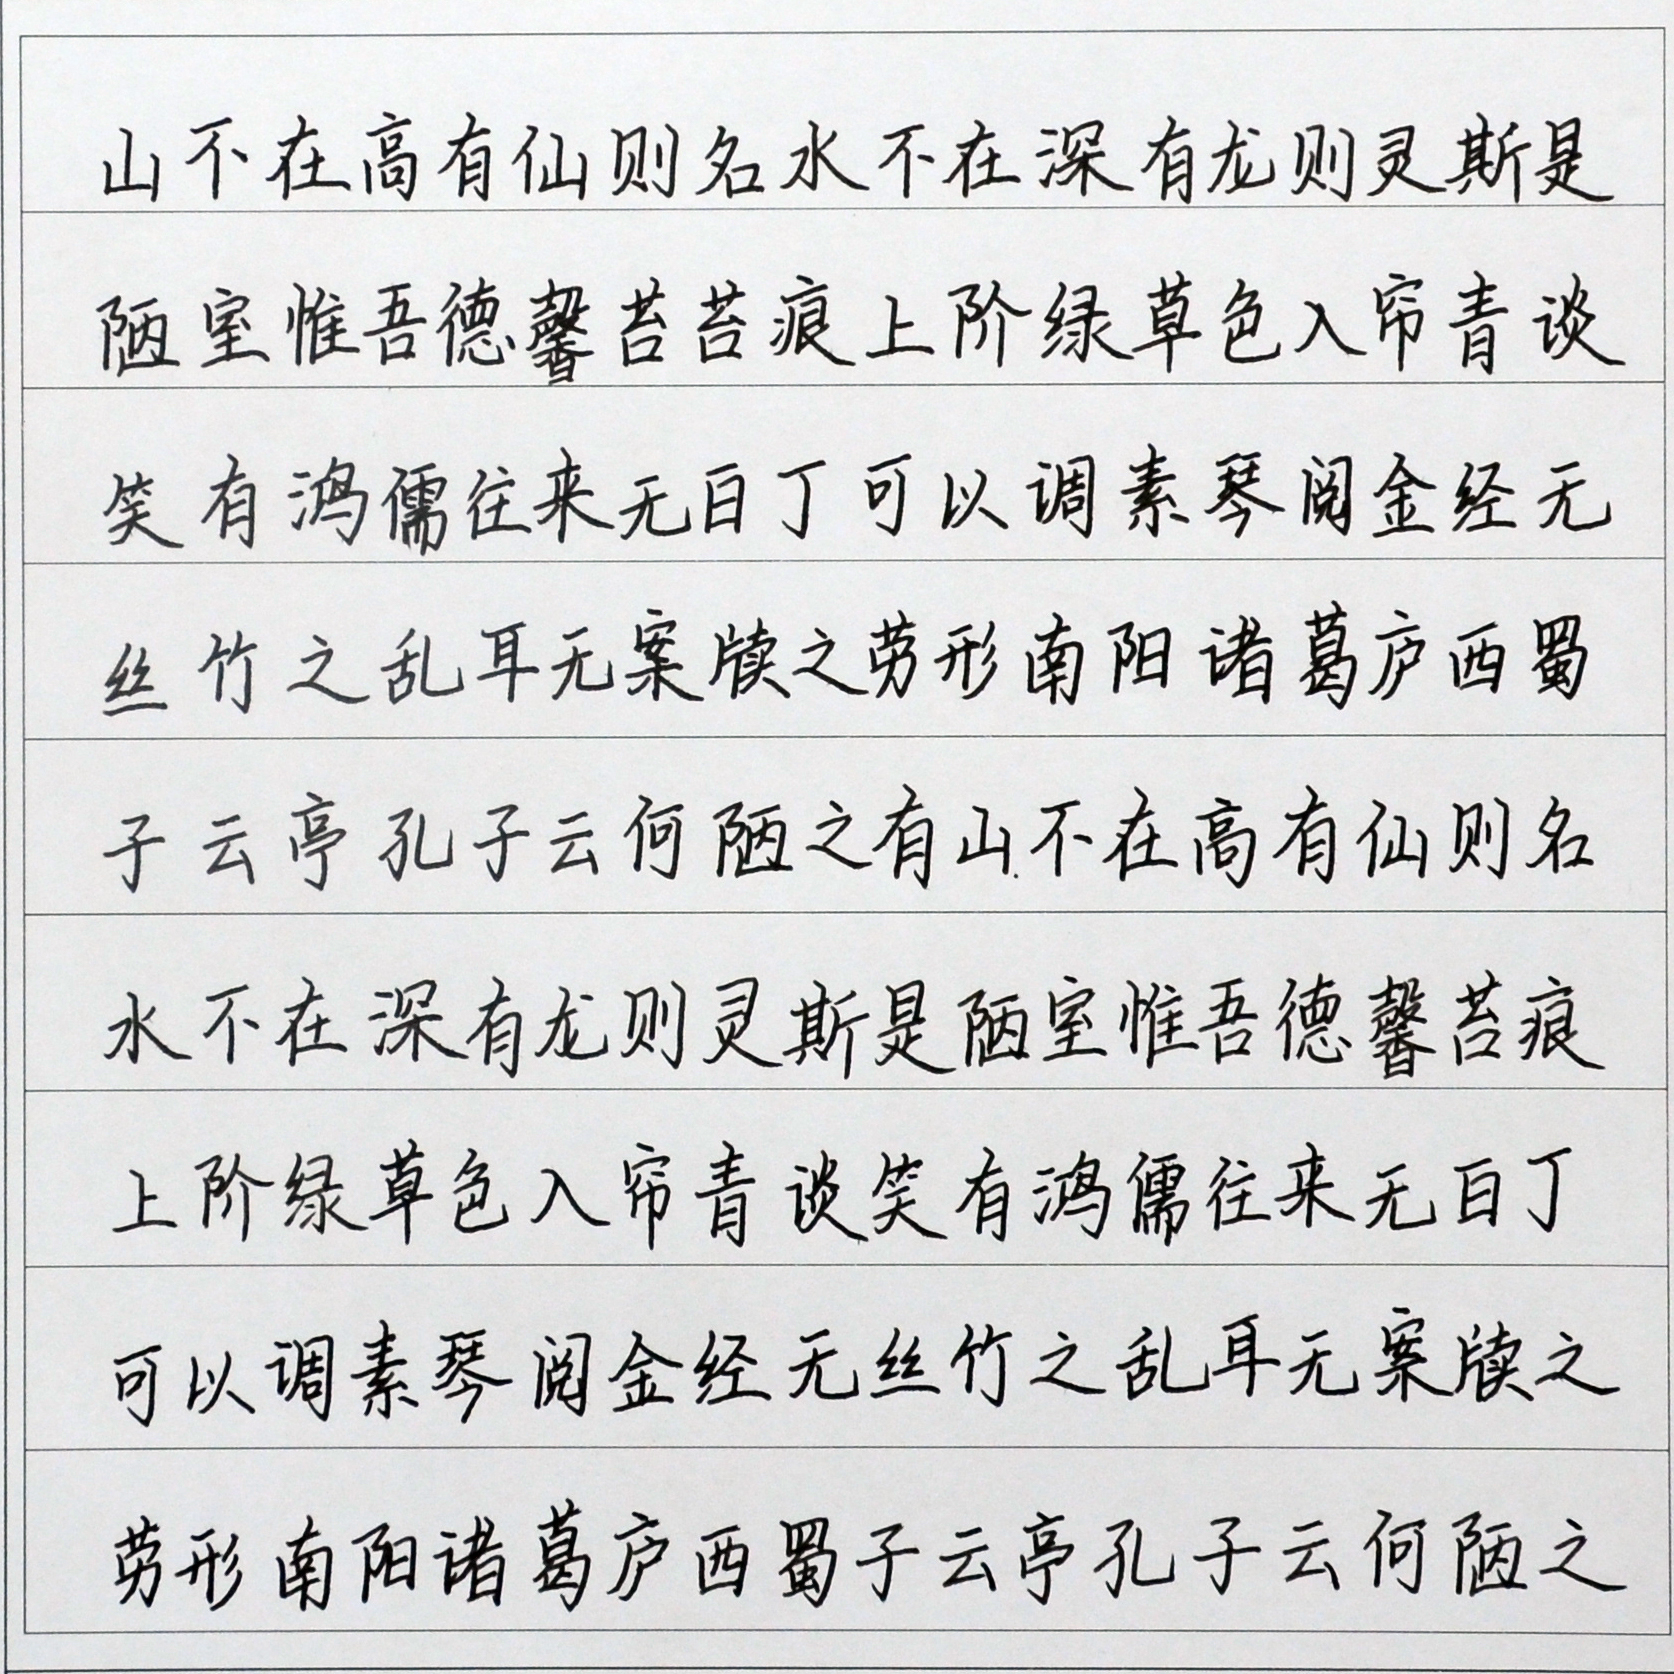 山不在高有仙则名水不在深有龙则灵斯是
陋室惟吾德馨苔苔痕上阶绿草色入帘青谈
笑有鸿儒往来无白丁可以调素琴阅金经无
丝竹之乱耳无案牍之劳形南阳诸葛庐西蜀
子云亭孔子云何陋之有山不在高有仙则名
水不在深有龙则灵斯是陋室惟吾德馨苔痕
上阶绿草色入帘青谈笑有鸿儒往来无白丁
可以调素琴阅金经无丝竹之乱耳无案牍之
劳形南阳诸葛庐西蜀子云亭孔子云何陋之